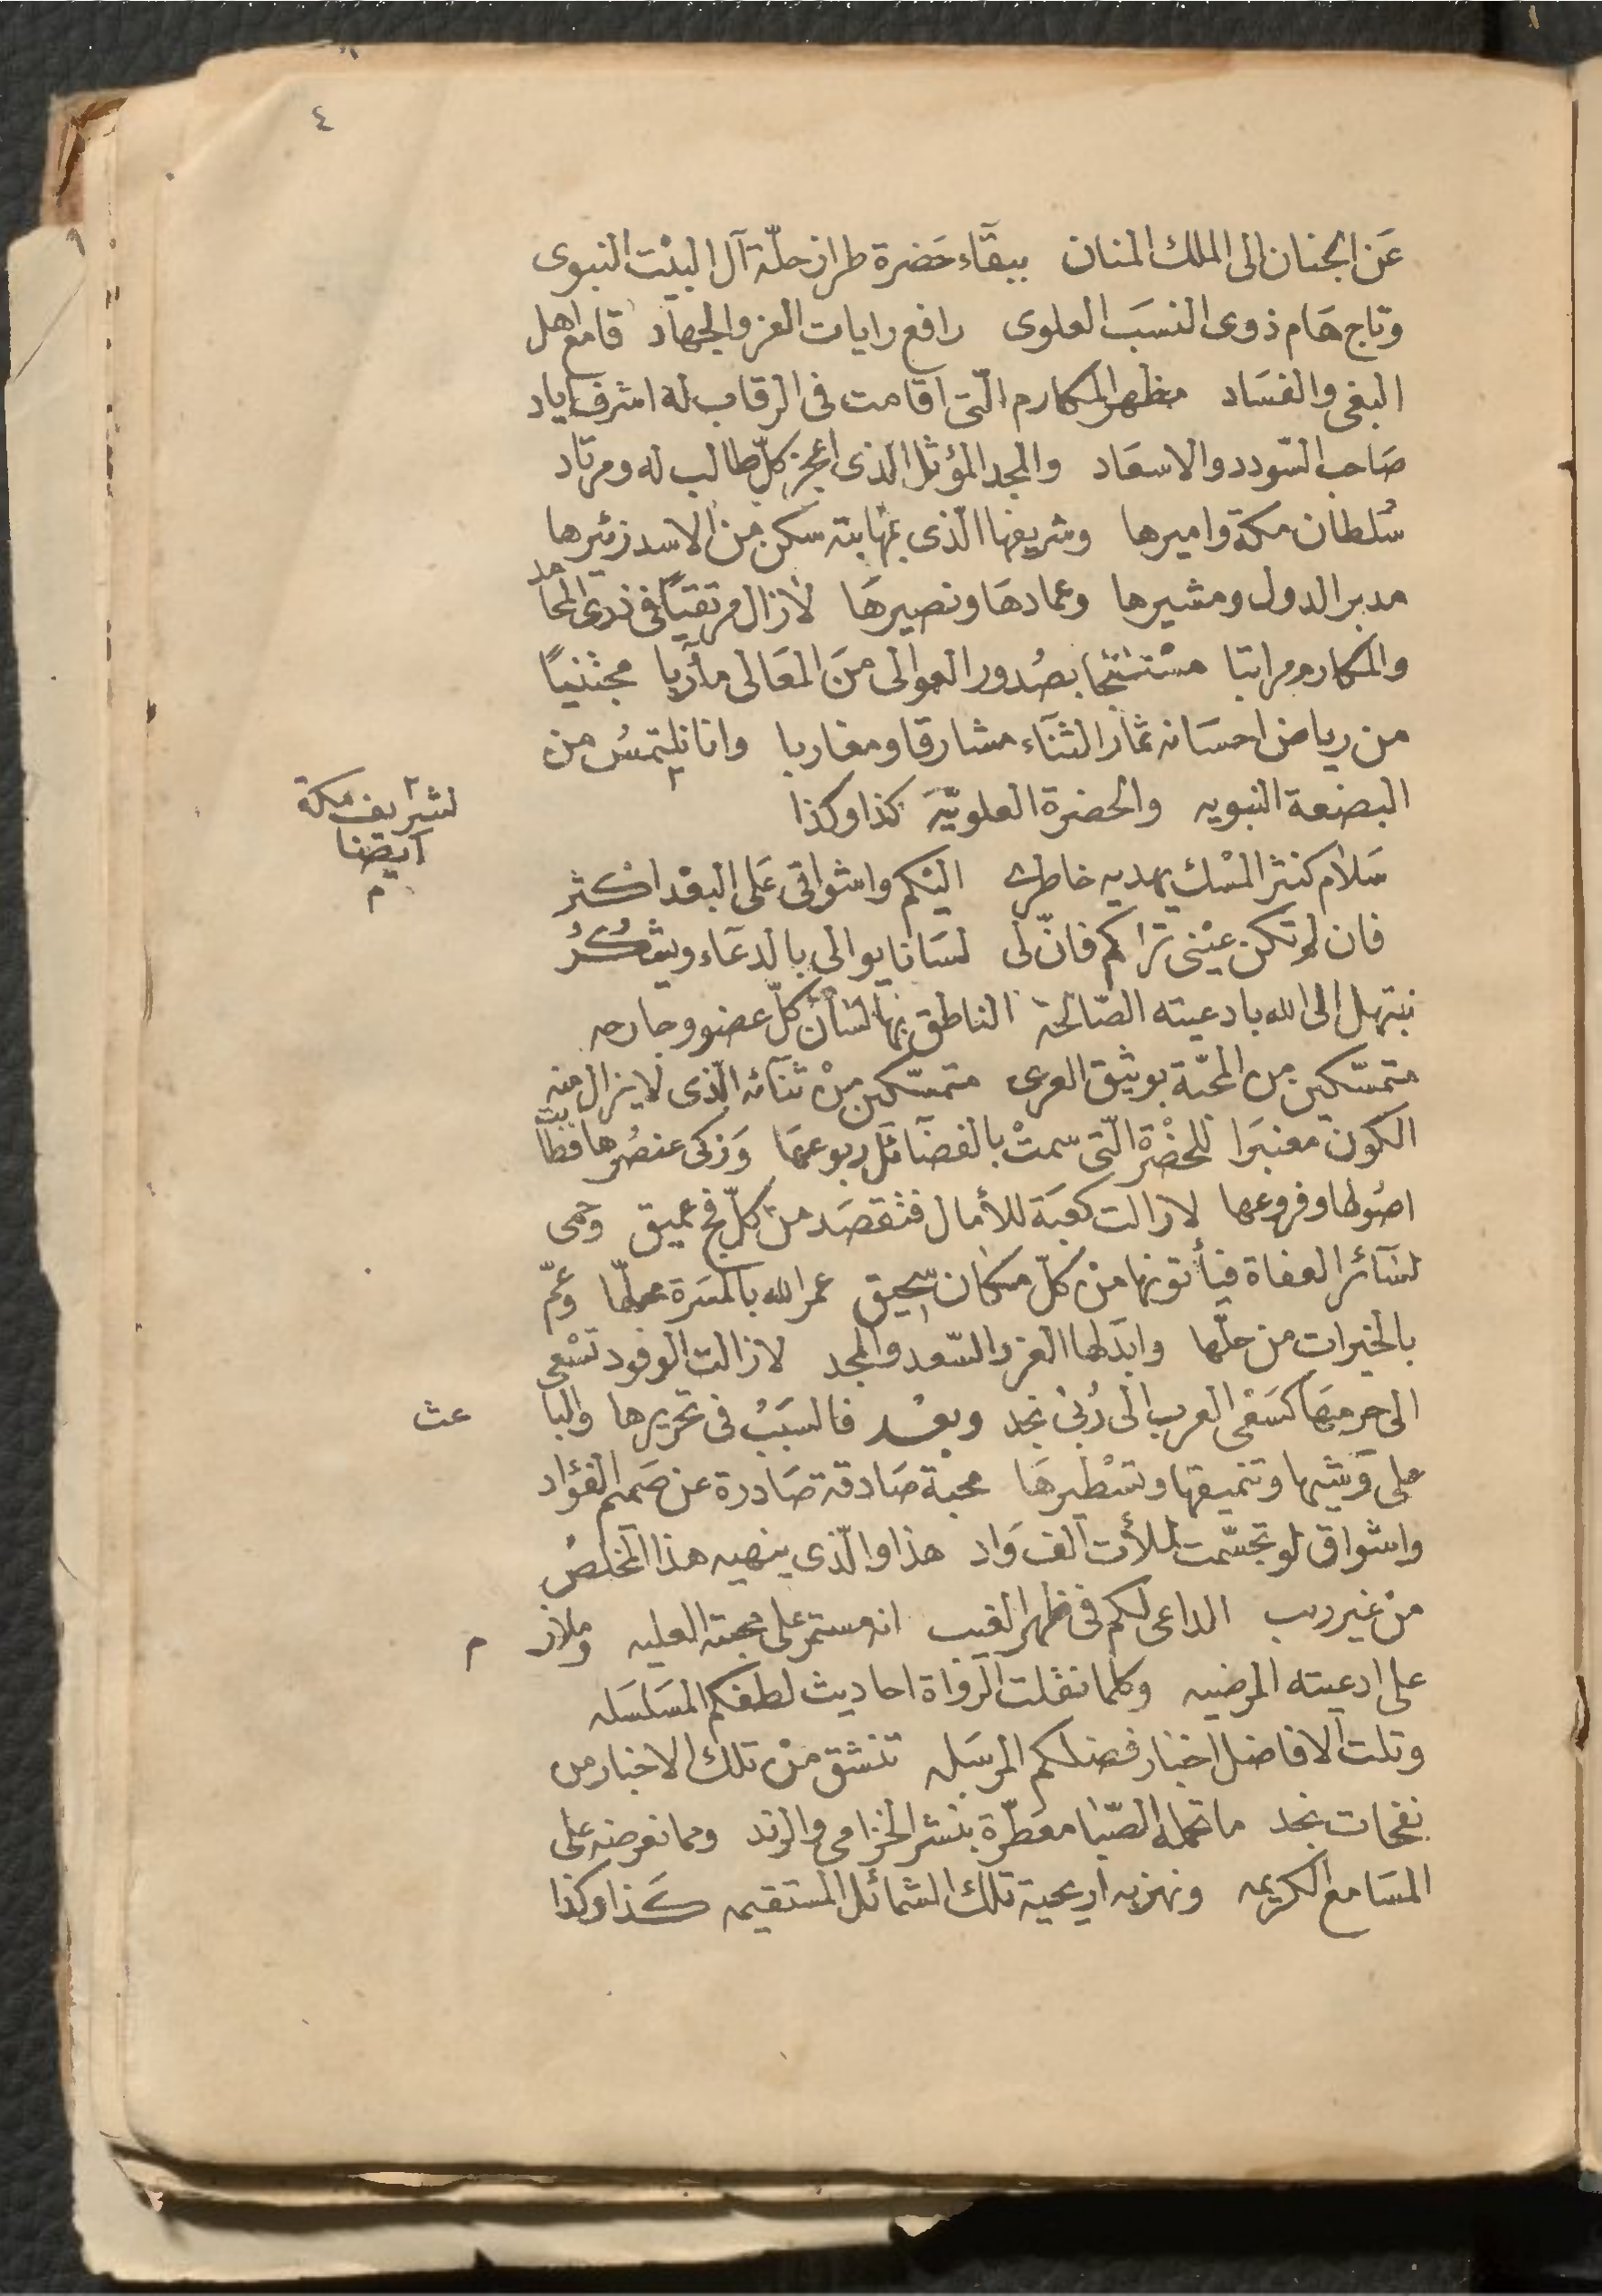 ٤
عَن الجنان الى الملك المنان ببقآء حَضرة طراز حلّة آل البيْت النبوى
وتاج هَام ذوى النسَب العلوى رافع رايات العز والجهاد قامع اهل
البغى والفسَاد مظهر المكارم الّتى اقامت فى الرقاب له اشرف اياد
صَاحب السّودد والاسعَاد والمجد المؤثل الّذى اعجز كلّ طالب له ومرتاد
سُلطان مكة واميرها وشريفها الّذى بمهابته سكن من الاسد زئيرها
مدبر الدول ومشيرها وعمادهَا ونصيرهَا لازال مرتقيًا فى ذرى المحامد
والمكارم مراتبا مسْتنتجا بصُدور العوالى منَ المعَالى مآربا مجتنيًا
من رياض احسَانه ثمار الثنآء مشارقا ومغاربا وانا نلتمسُ من
البضعة النبويه والحضرة العلويّة كذا وكذا
لشريف مكة
ايضا
سَلام كنثر المسْك يهديه خاطرى اليْكم واشواقى عَلى البعْد اكثر
فان لم تكن عيْنى تراكم فانّ لى لسَانا يوالى بالدعَاء ويشكُرُ
نبتهل الى الله بادعيته الصّالحة الناطق بها لسَان كلّ عضو وجارحه
متمسّكين من المحبّة بوثيق العرى متمسّكين منْ ثنآئه الّذى لايزال منه
الكون معنبَرا للحضْرة الّتى سمتْ بالفضآئل ربوعهَا وَزكى عنصُرها فطابت
اصُولها وفروعها لازالت كعبَة للأمال فتقصَد من كلّ فج عميق وحمى
لسَآئر العفاة فيأتونها منْ كلّ مكان سحيق عمر الله بالمسَرة محلّها وعمّ
بالخيرات من حلّها وابدَلها العز والسّعد والمجد لازالت الوفود تسْعى
الى حرمهَا كسَعْى العرب الى رُبى نجد وبعْد فالسبَبُ فى تحريرها والبا
عث
على توشيها وتنميقها وتسْطيرهَا محبة صَادقة صَادرة عن صَميم الفؤاد
واشواق لو تجسّمت لملأت الف وَاد هذا والّذى ينهيه هذا المخلصُ
منْ غير ريب الداعى لكم فى ظهر الغيب انه مستمر على محبته العليه وملازم
على ادعيته المرضيه وكلما نقلت الرواة احاديث لطفكم المسَلسَله
وتلت الافاضل اخبار فضلكم المرسَله تنشق منْ تلك الاخبار من
نفحات نجد ما تحمله الصّبا معَطّرة بنشر الخزامى والرند ومما نعرضه على
المسَامع الكريمه ونهز به اريحية تلك الشمائل المستقيمه كَذا وكذا